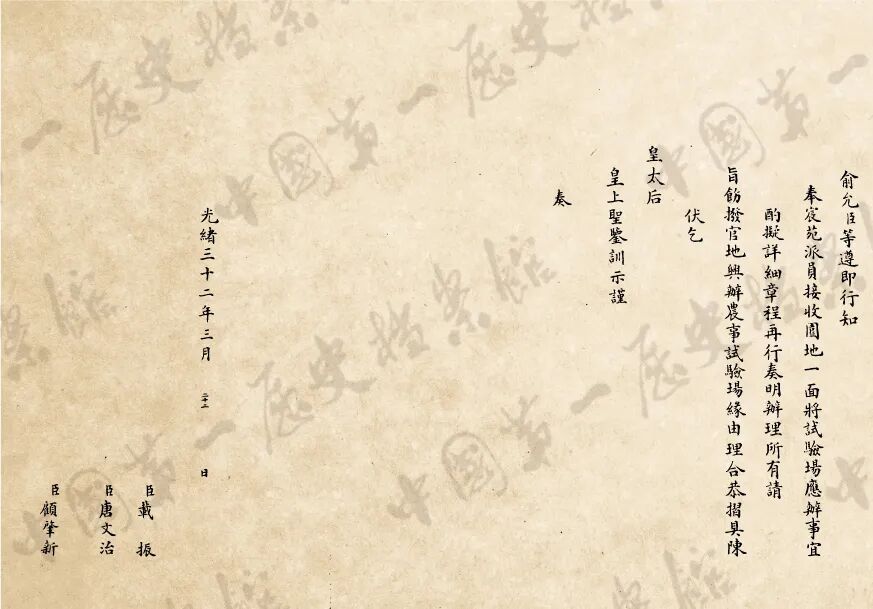 俞允臣等遵即行知
奉宸苑派員接收園地一面將試驗場應辦事宜
酌擬詳細章程再行奏明辦理所有請
旨飭撥官地興辦農事試驗場緣由理合恭摺具陳
伏乞
皇太后
皇上聖鑒訓示謹
奏
光緒三十二年三月二十二日
臣載振
臣唐文治
臣顧肇新
中國第一歷史檔案館